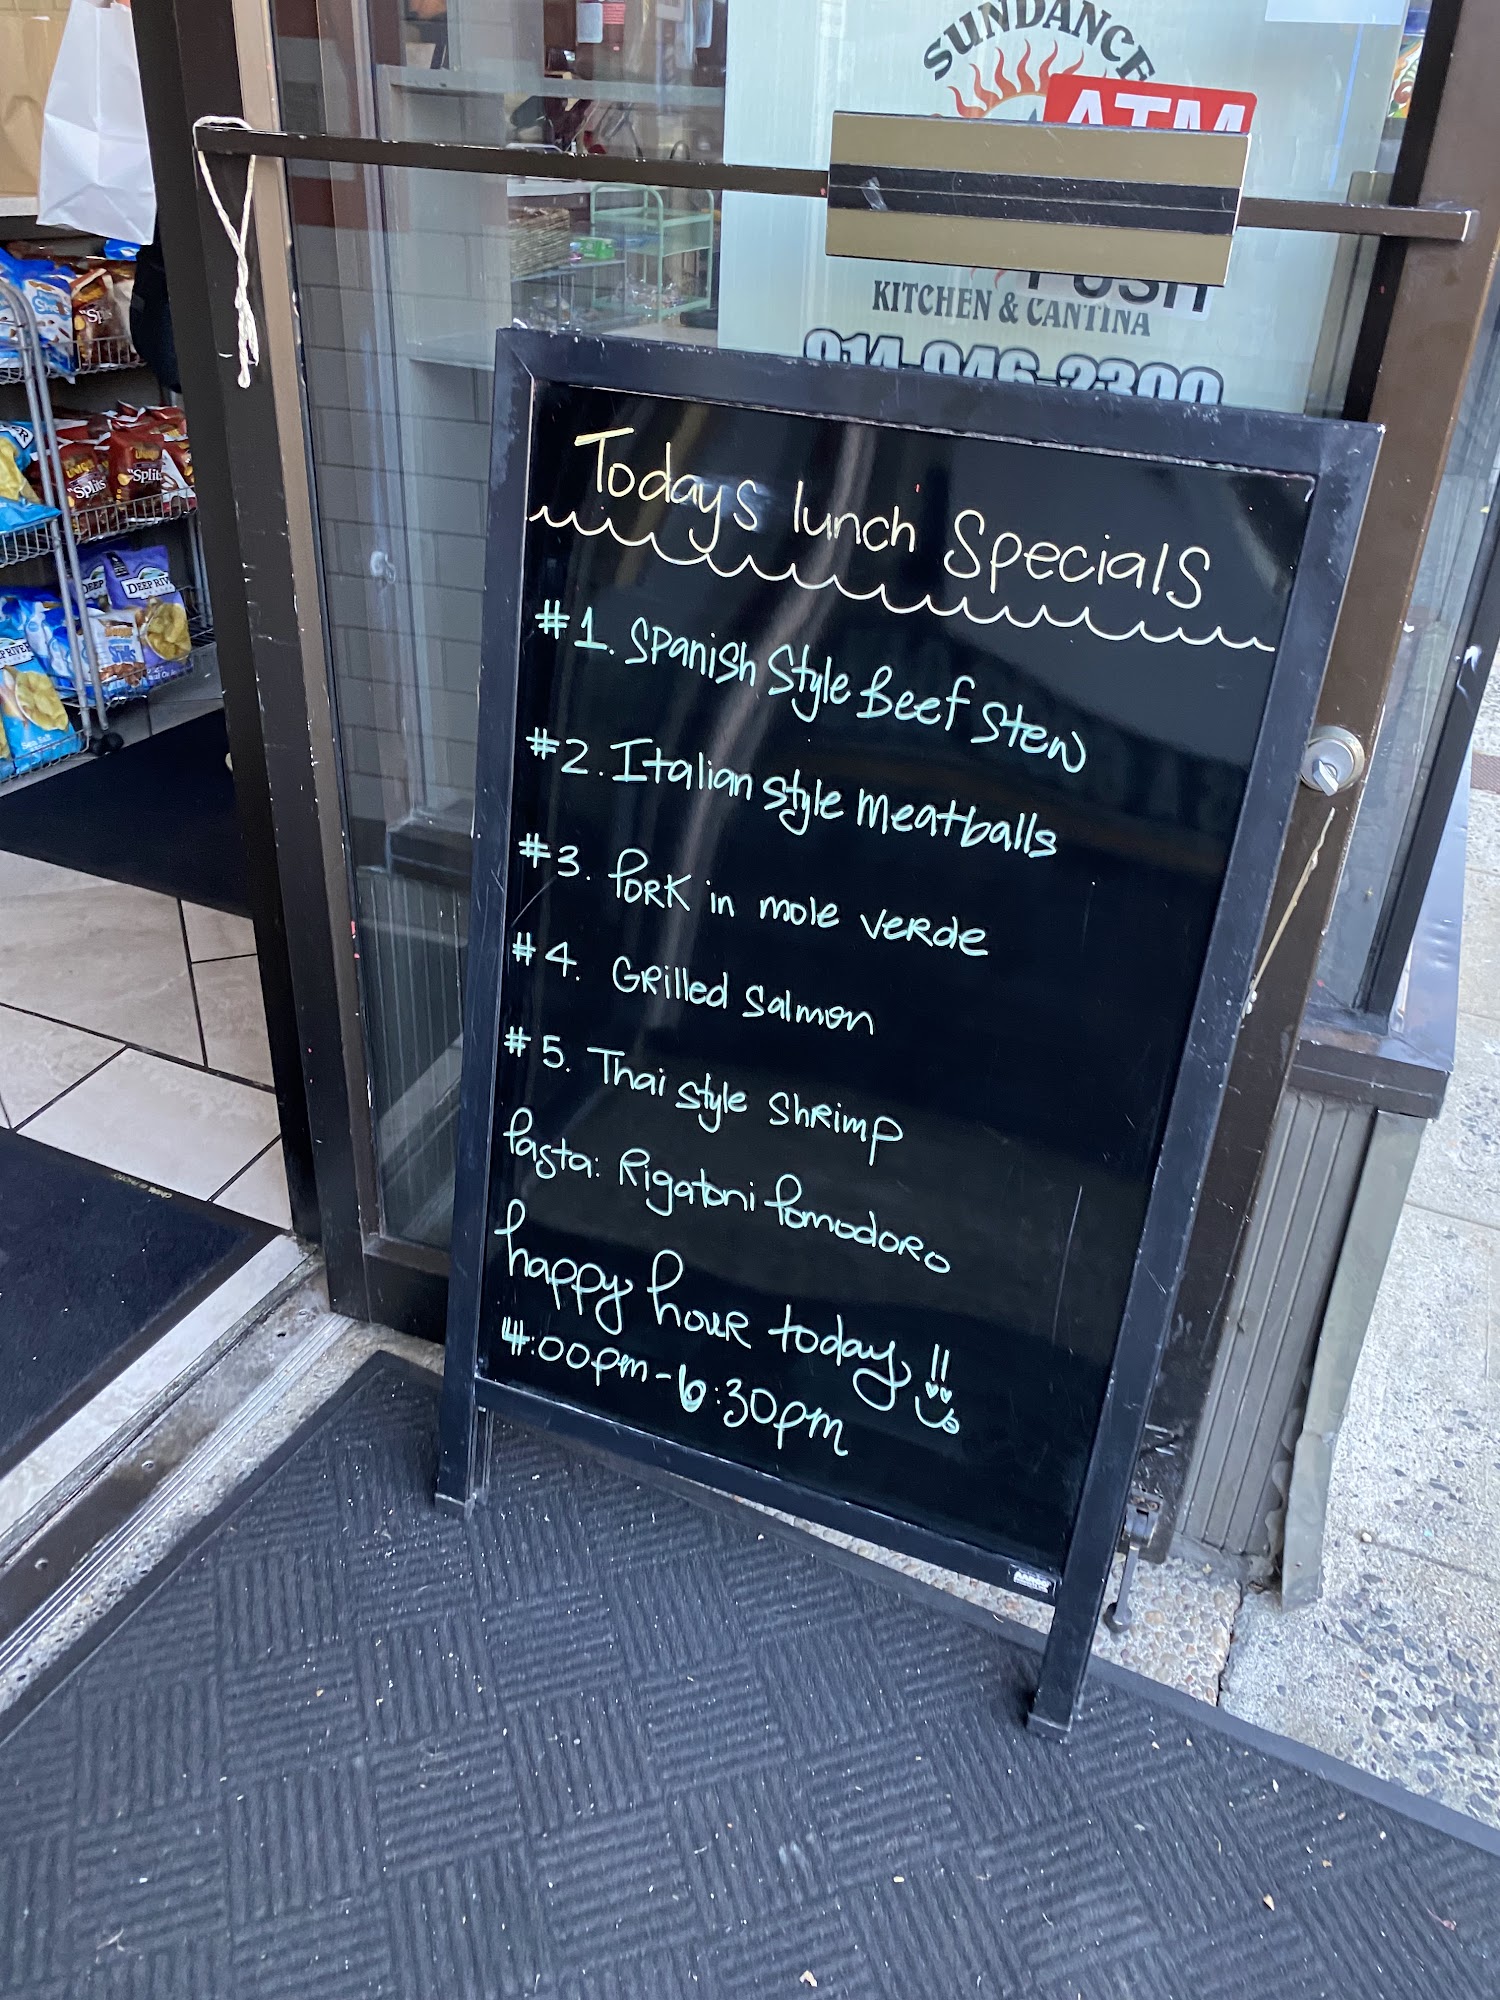 SUNDANCE
ATM
PUSH
KITCHEN & CANTINA
914-946-2300
Todays lunch Specials
#1. Spanish Style Beef Stew
#2. Italian style meatballs
#3. Pork in mole verde
#4. Grilled Salmon
#5. Thai style Shrimp
Pasta: Rigatoni Pomodoro
happy hour today !!
4:00pm-6:30pm
"Splits"
"Splits"
DEEP
DEEP RIV